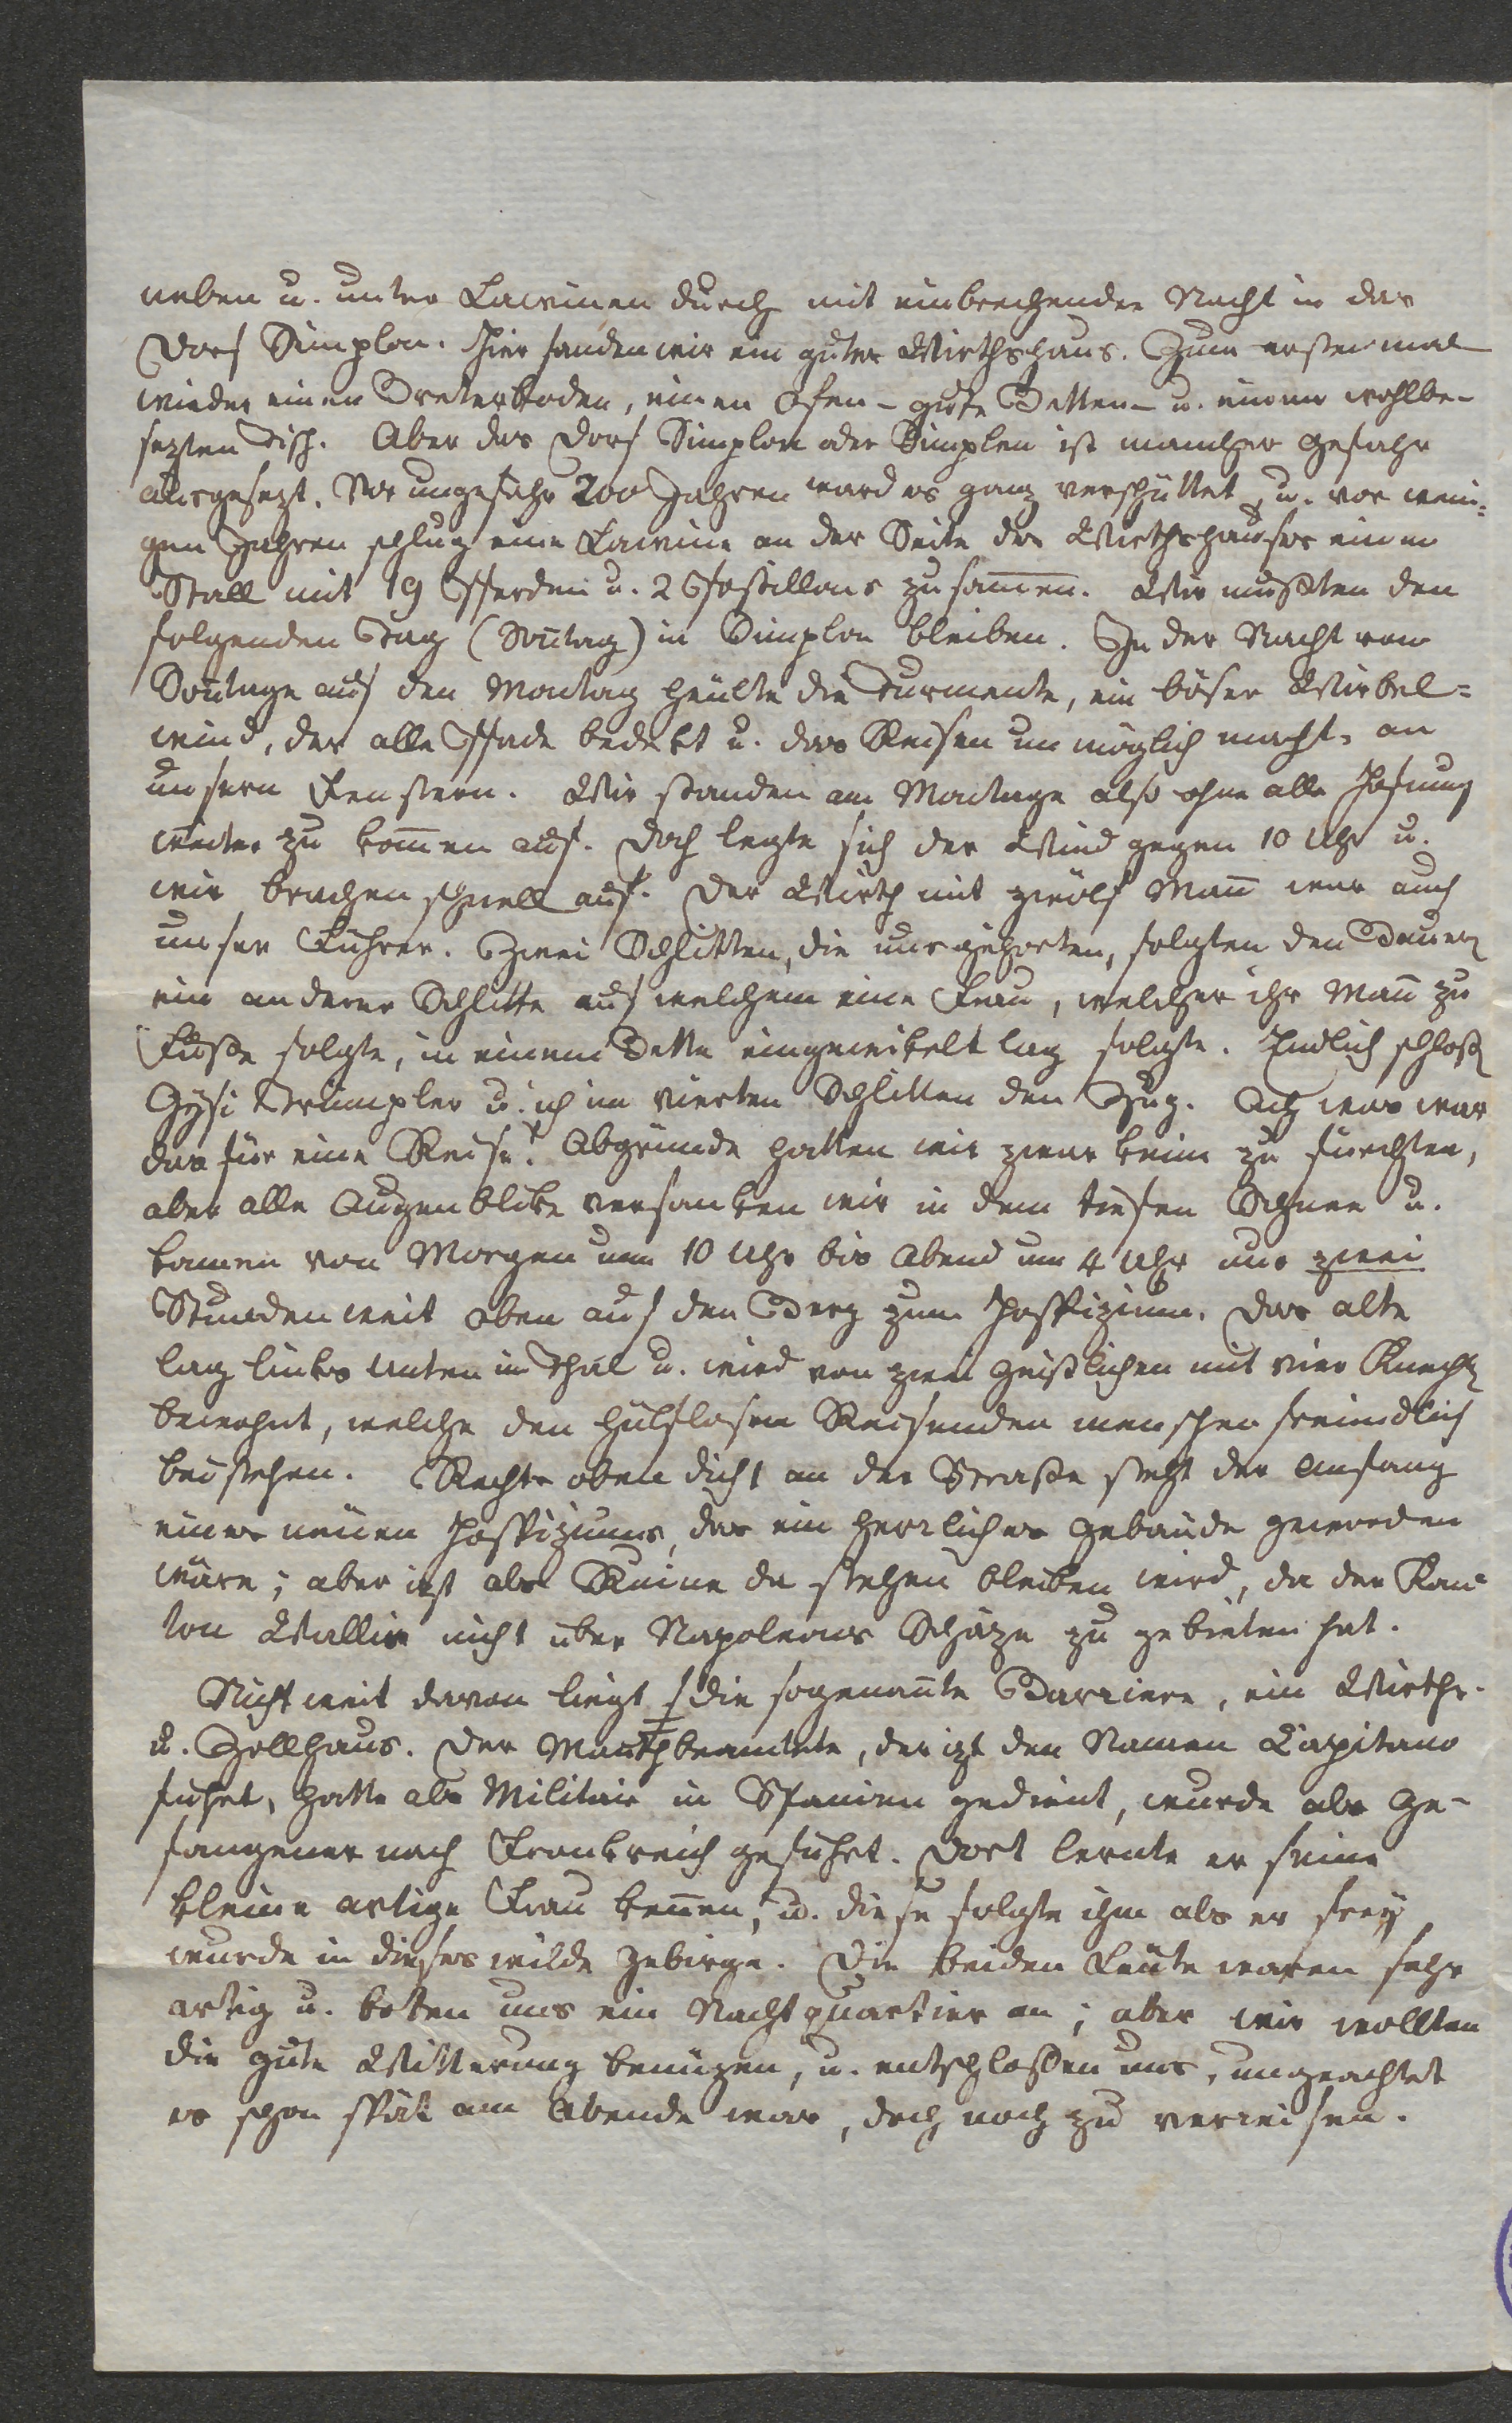 neben u. unter Lawinen durch mit einbrechender Nacht in das
Dorf Simplon. Hier fanden wir ein gutes Wirthshaus. Zum erstenmal
wieder einen Breterboden, einen Ofen – gute Betten – u. einen wohlbe-
sezten Tisch. Aber das Dorf Simplon oder Simpeln ist mancher Gefahr
ausgesezt. Vor ungefähr 200 Jahren ward es ganz verschüttet, u. vor weni-
gen Jahren schlug eine Lawine an der Seite des Wirthshauses einen
Stall mit 19 Pferden u. 2 Postillons zusammen. Wir mußten den
folgenden Tag (Sontag) in Simplon bleiben. In der Nacht vom
Sontage auf den Montag heulte die Turmente, ein böser Wirbel-
wind, der alle Pfade bedekt u. das Reisen unmöglich macht, an
unsern Fenstern. Wir standen am Montage also ohne alle Hofnung
weiter zu kommen auf. Doch legte sich der Wind gegen 10 Uhr u.
wir brachen schnell auf. Der Wirth mit zwölf Mann war auch
unser Führer. Zwei Schlitten, die uns gehorten, folgten den Bauern
ein anderer Schlitte auf welchem eine Frau, welcher ihr Mann zu
Fuße folgte, in einem Bette eingewikelt lag folgte. Endlich schloß
Gysi Trümpler u. ich im vierten Schlitten den Zug. Ach was war
das für eine Reise! Abgründe hatten wir zwar keine zu fürchten,
aber alle Augenblike versanken wir in dem tiefen Schnee u.
kamen von Morgen um 10 Uhr bis Abend um 4 Uhr nur zwei
Stunden weit oben auf den Berg zum Hospizium. Das alte
lag links unten im Thal u. wird von zwei Geistlichen mit vier Knechten
bewohnt, welche den hülflosen Reisenden menschenfreundlich
beistehen. Rechts oben dicht an der Straße steht der Anfang
eines neuen Hospiziums, das ein herrliches Gebäude geworden
wäre; aber izt als Ruine da stehen bleiben wird, da der Kan-
ton Wallis nicht über Napoleons Schäze zu gebieten hat.
Nicht weit davon liegt die sogenannte Barriere, ein Wirths-
u. Zollhaus. Der Mauthbeamtete, der izt den Namen Capitano
führt, hatte als Militair in Spanien gedient, wurde als Ge-
fangener nach Frankreich geführt. Dort lernte er seine
kleine artige Frau kennen, u. diese folgte ihm als er frey
wurde in dieses wilde Gebirge. Die beiden Leute waren sehr
artig u. boten uns ein Nachtquartier an; aber wir wollten
die gute Witterung benuzen, u. entschloßen uns, ungeachtet
es schon spät am Abende war, doch noch zu verreisen.